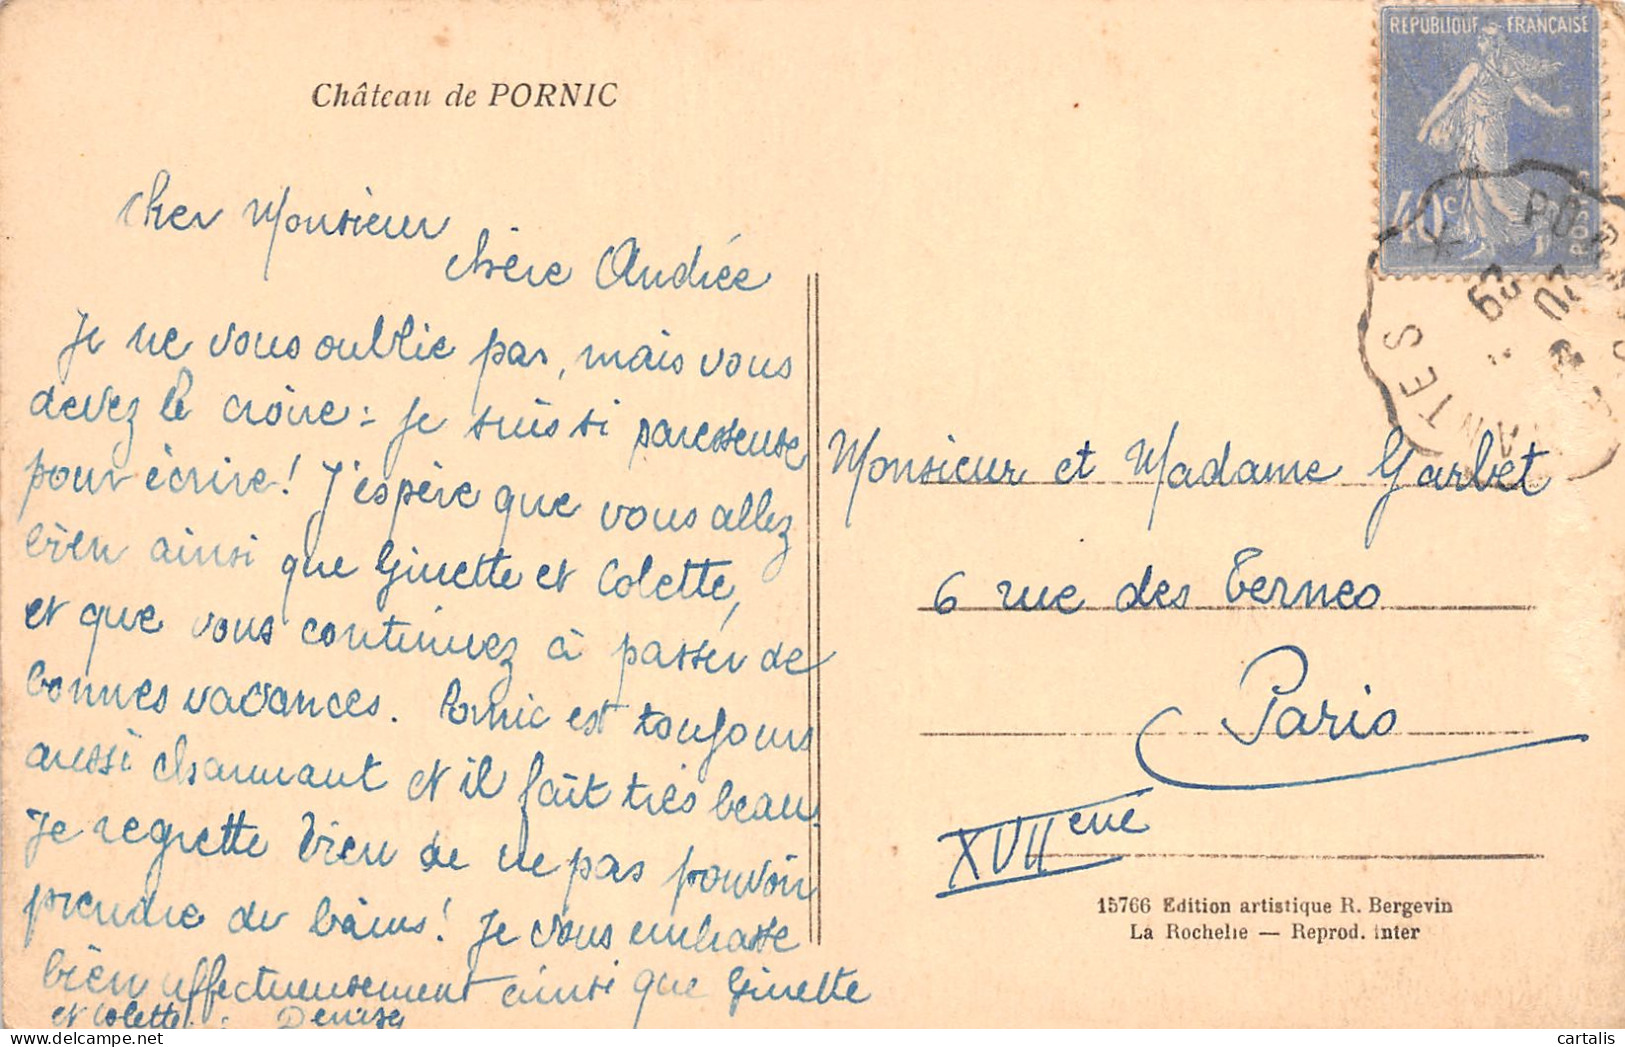 Château de PORNIC
REPUBLIQUE FRANÇAISE
40c
POSTES
NANTES
Cher Monsieur
Chère Andrée
Je ne vous oublie pas, mais vous
devez le croire : je suis si paresseuse
pour écrire ! J'espère que vous allez
bien ainsi que Ginette et Colette,
et que vous continuez à passer de
bonnes vacances. Pornic est toujours
aussi charmant et il fait très beau.
Je regrette bien de ne pas pouvoir
prendre de bains ! Je vous embrasse
bien affectueusement ainsi que Ginette
et Colette. Denise
Monsieur et Madame Garbet
6 rue des Ternes
Paris
XVIIème
15766 Edition artistique R. Bergevin
La Rochelle — Reprod. inter
© cartalis
delcampe.net